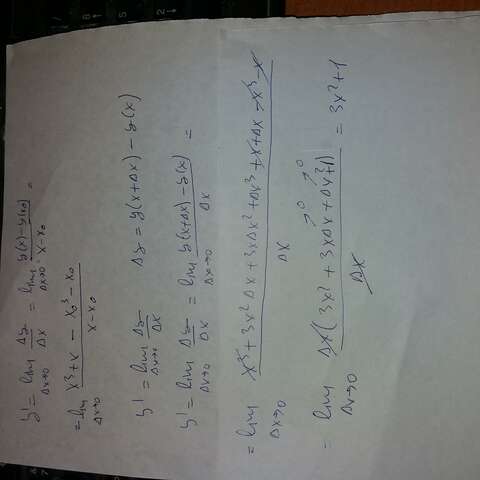 y' = lim Δx→0 Δy/Δx = lim Δx→0 y(x)-y(x₀)/x-x₀ =
= lim Δx→0 x³+x - x₀³-x₀/x-x₀
y' = lim Δx→0 Δy/Δx Δy = y(x+Δx) - y(x)
y' = lim Δx→0 Δy/Δx = lim Δx→0 y(x+Δx)-y(x)/Δx =
= lim Δx→0 x³+3x²Δx+3xΔx²+Δx³+x+Δx-x³-x/Δx
= lim Δx→0 Δx(3x²+3xΔx→0+Δx²→0+1)/Δx = 3x²+1